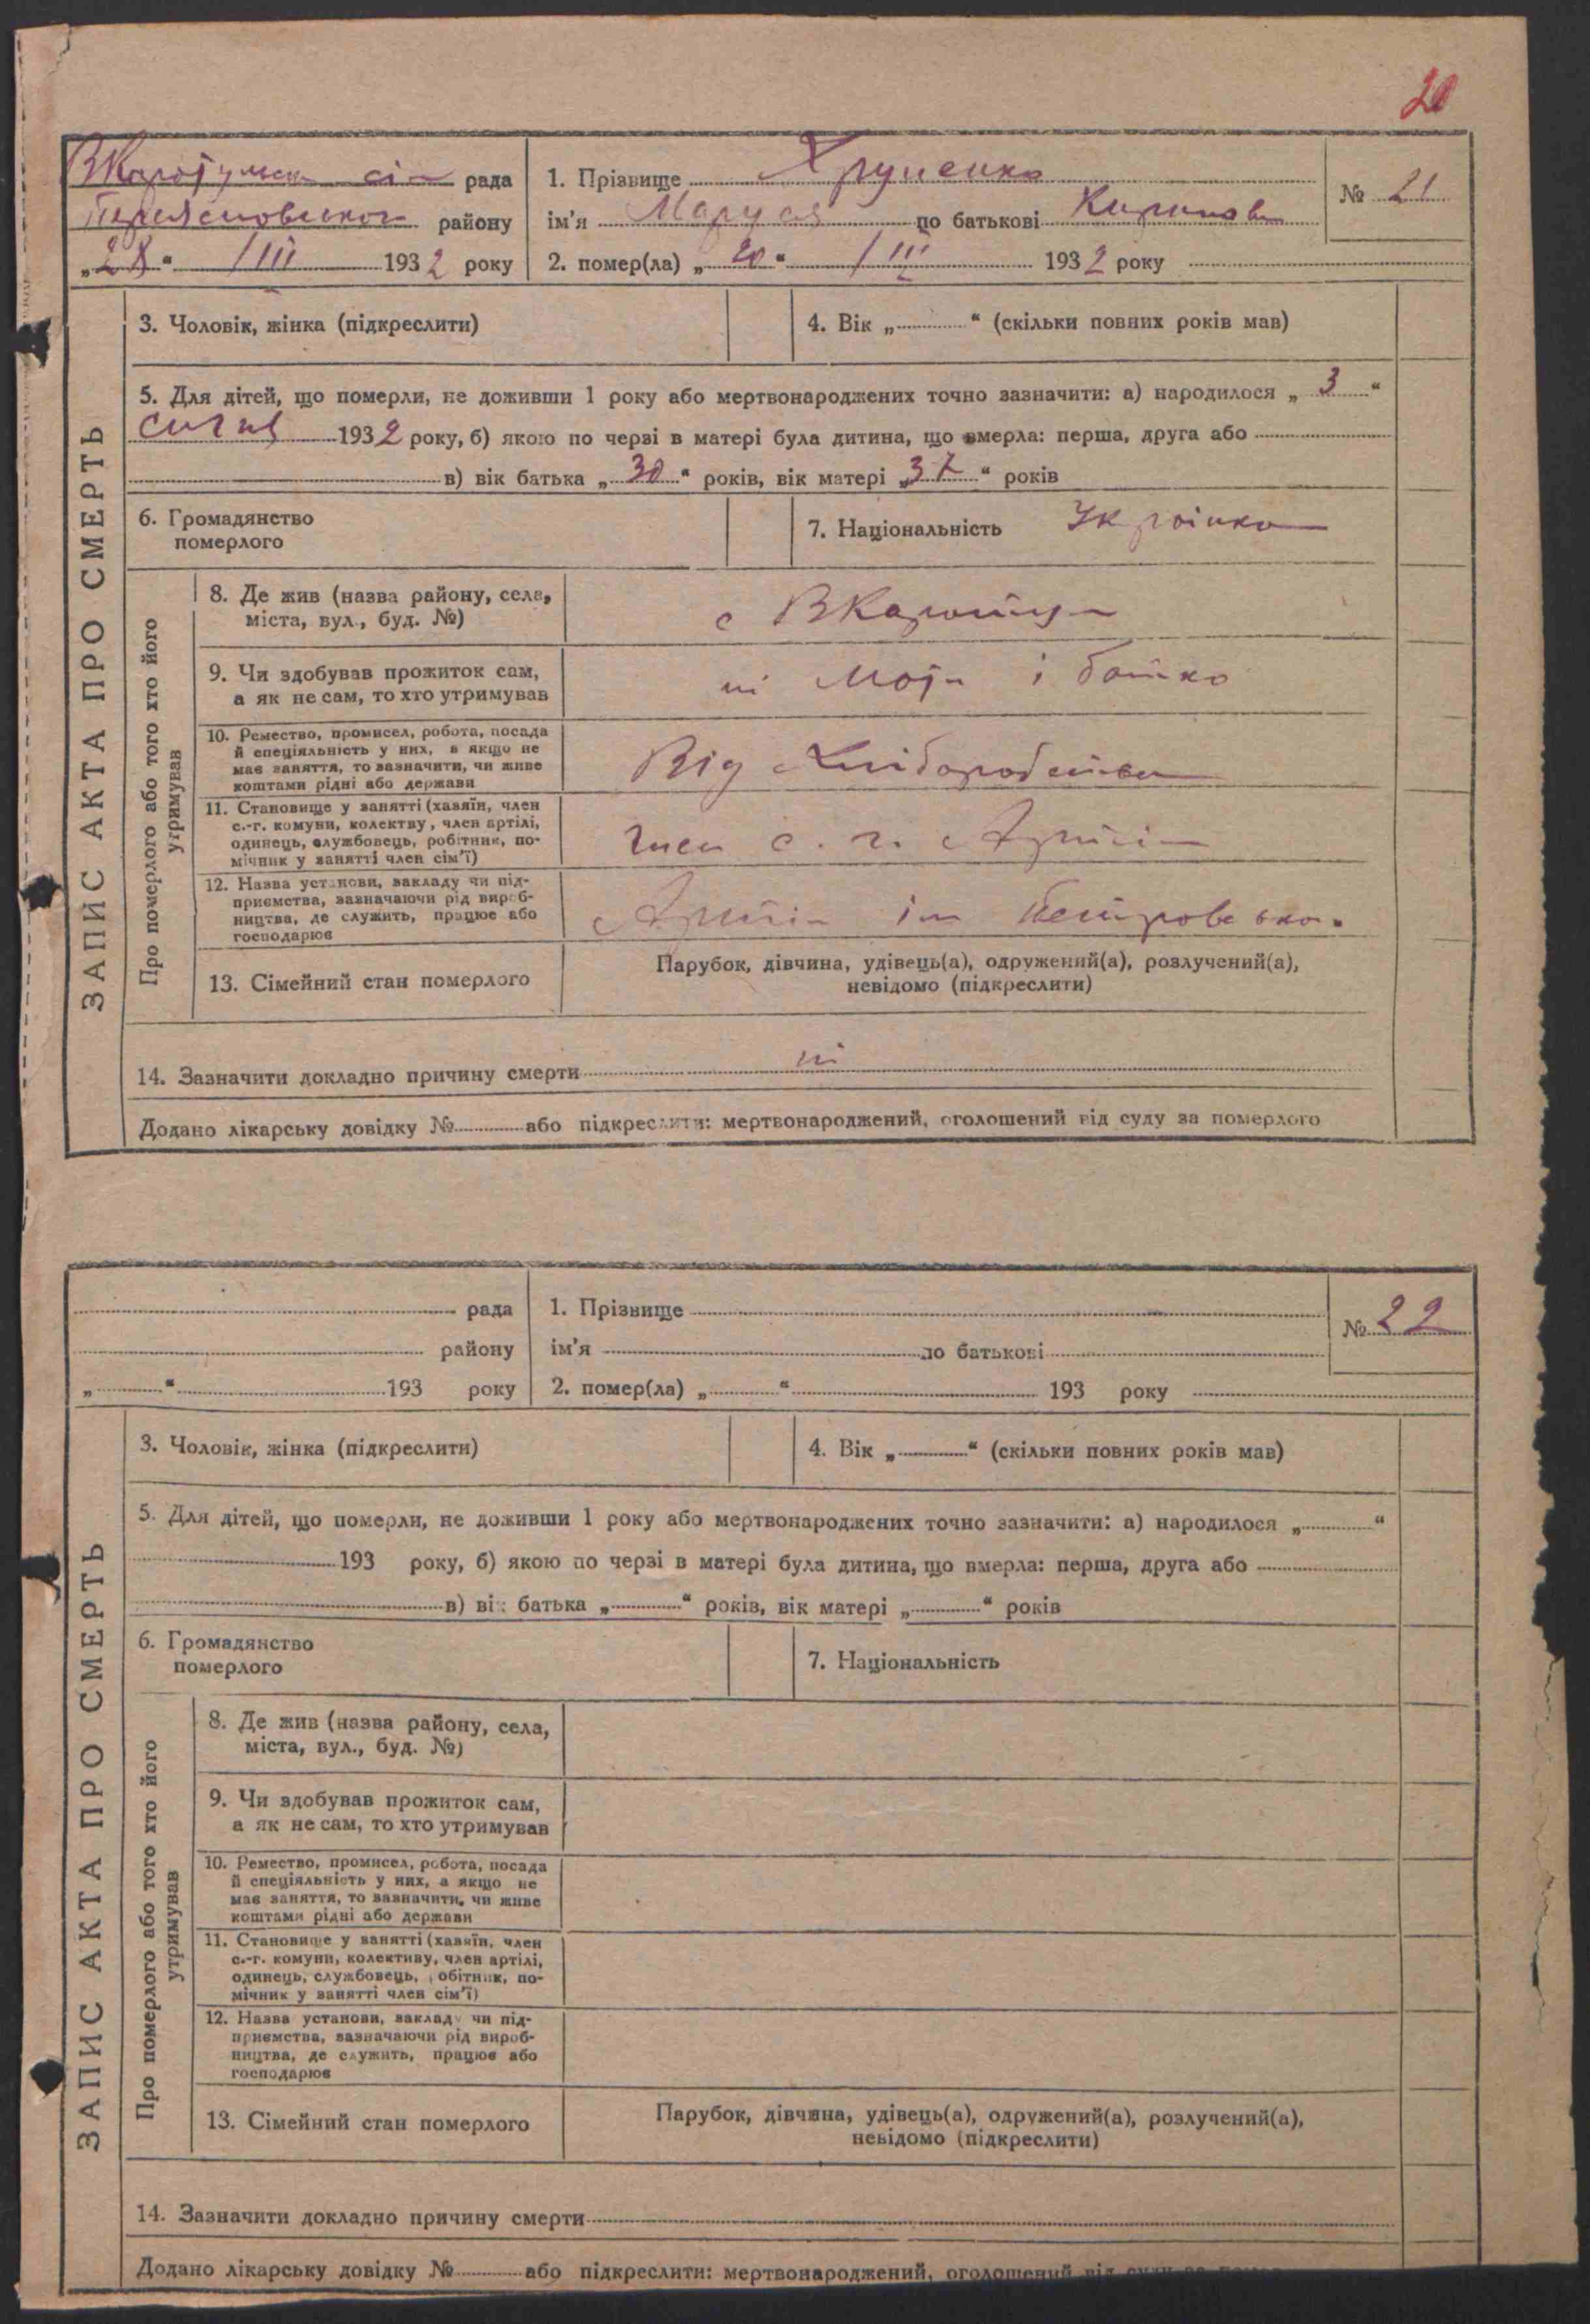 20
ВКаратул сіл рада
Переяславського району
„28“ /III 1932 року
1. Прізвище Хруненко
ім'я Маруся по батькові
2. помер(ла) „20“ /III 1932 року
№ 21
ЗАПИС АКТА ПРО СМЕРТЬ
3. Чоловік, жінка (підкреслити)
4. Вік „ “ (скільки повних років мав)
5. Для дітей, що померли, не доживши 1 року або мертвонароджених точно зазначити: а) народилося „3“
січня 1932 року, б) якою по черзі в матері була дитина, що вмерла: перша, друга або
в) вік батька „38“ років, вік матері „37“ років
6. Громадянство
померлого
7. Національність Українка
Про померлого або того хто його
утримував
8. Де жив (назва району, села,
міста, вул., буд. №)
с ВКаратул
9. Чи здобував прожиток сам,
а як не сам, то хто утримував
ні Мати і батько
10. Ремество, промисел, робота, посада
й спеціяльність у них, а якщо не
має заняття, то зазначити, чи живе
коштами рідні або держави
Від Хліборобства
11. Становище у занятті (хазяїн, член
с.-г. комуни, колективу, член артілі,
одинець, службовець, робітник, по-
мічник у занятті член сім'ї)
член с. г. Артілі
12. Назва установи, закладу чи під-
приємства, зазначаючи рід вироб-
ництва, де служить, працює або
господарює
Артіль ім Петровсько.
13. Сімейний стан померлого
Парубок, дівчина, удівець(а), одружений(а), розлучений(а),
невідомо (підкреслити)
14. Зазначити докладно причину смерти ні
Додано лікарську довідку № або підкреслити: мертвонароджений, оголошений від суду за померлого
рада
району
„ “ 193 року
1. Прізвище
ім'я по батькові
2. помер(ла) „ “ 193 року
№ 22
ЗАПИС АКТА ПРО СМЕРТЬ
3. Чоловік, жінка (підкреслити)
4. Вік „ “ (скільки повних років мав)
5. Для дітей, що померли, не доживши 1 року або мертвонароджених точно зазначити: а) народилося „ “
193 року, б) якою по черзі в матері була дитина, що вмерла: перша, друга або
в) вік батька „ “ років, вік матері „ “ років
6. Громадянство
померлого
7. Національність
Про померлого або того хто його
утримував
8. Де жив (назва району, села,
міста, вул., буд. №)
9. Чи здобував прожиток сам,
а як не сам, то хто утримував
10. Ремество, промисел, робота, посада
й спеціяльність у них, а якщо не
має заняття, то зазначити, чи живе
коштами рідні або держави
11. Становище у занятті (хазяїн, член
с.-г. комуни, колективу, член артілі,
одинець, службовець, робітник, по-
мічник у занятті член сім'ї)
12. Назва установи, закладу чи під-
приємства, зазначаючи рід вироб-
ництва, де служить, працює або
господарює
13. Сімейний стан померлого
Парубок, дівчина, удівець(а), одружений(а), розлучений(а),
невідомо (підкреслити)
14. Зазначити докладно причину смерти
Додано лікарську довідку № або підкреслити: мертвонароджений, оголошений від суду за